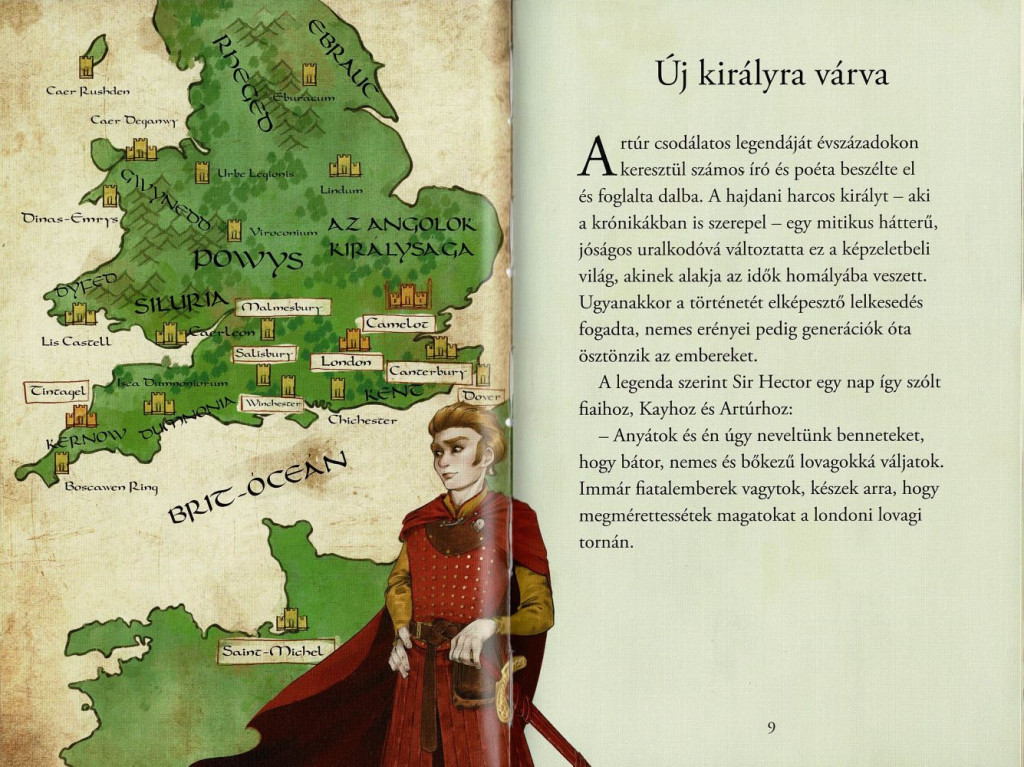 EBRAUC
RHEGED
Caer Rushden
Eburacum
Caer Deganwy
Urbe Legionis
Lindum
GWYNEDD
Dinas-Emrys
Viroconium
AZ ANGOLOK
KIRÁLYSÁGA
POWYS
DYFED
SILURIA
Malmesbury
Camelot
Lis Castell
Caerleon
Salisbury
London
Canterbury
Tintagel
Isca Dumnoniorum
KENT
Dover
Winchester
Chichester
KERNOW
DUMNONIA
Boscawen Ring
BRIT-ÓCEÁN
Saint-Michel
Új királyra várva
Artúr csodálatos legendáját évszázadokon
keresztül számos író és poéta beszélte el
és foglalta dalba. A hajdani harcos királyt – aki
a krónikákban is szerepel – egy mitikus hátterű,
jóságos uralkodóvá változtatta ez a képzeletbeli
világ, akinek alakja az idők homályába veszett.
Ugyanakkor a történetét elképesztő lelkesedés
fogadta, nemes erényei pedig generációk óta
ösztönzik az embereket.
A legenda szerint Sir Hector egy nap így szólt
fiaihoz, Kayhoz és Artúrhoz:
– Anyátok és én úgy neveltünk benneteket,
hogy bátor, nemes és bőkezű lovagokká váljatok.
Immár fiatalemberek vagytok, készek arra, hogy
megmérettessétek magatokat a londoni lovagi
tornán.
9